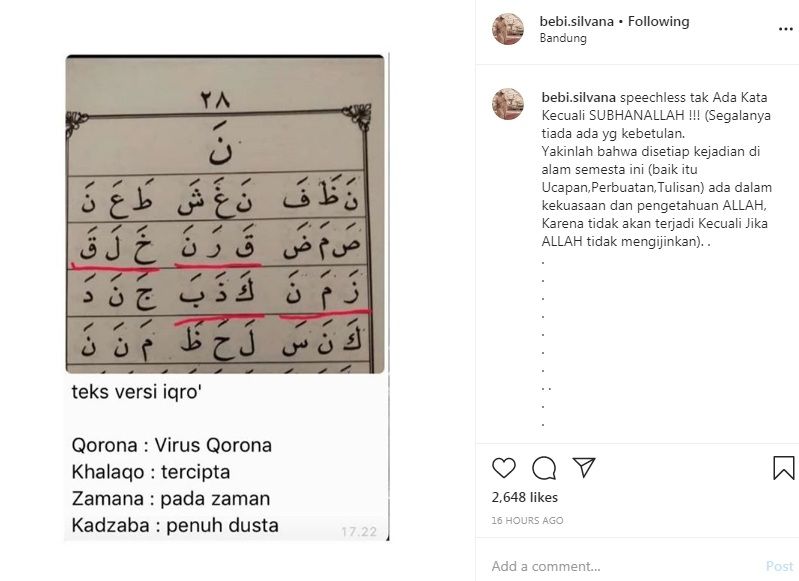 ٢٨
نَ
نَظَفَ نَغَشَ طَعَنَ
صَمَضَ قَرَنَ خَلَقَ
زَمَنَ كَذَبَ جَنَدَ
كَنَسَ لَحَظَ مَنَنَ
teks versi iqro'
Qorona : Virus Qorona
Khalaqo : tercipta
Zamana : pada zaman
Kadzaba : penuh dusta
17.22
bebi.silvana • Following
Bandung
bebi.silvana speechless tak Ada Kata
Kecuali SUBHANALLAH !!! (Segalanya
tiada ada yg kebetulan.
Yakinlah bahwa disetiap kejadian di
alam semesta ini (baik itu
Ucapan,Perbuatan,Tulisan) ada dalam
kekuasaan dan pengetahuan ALLAH,
Karena tidak akan terjadi Kecuali Jika
ALLAH tidak mengijinkan). .
.
.
.
.
.
.
.
. .
.
.
2,648 likes
16 HOURS AGO
Add a comment...
Post